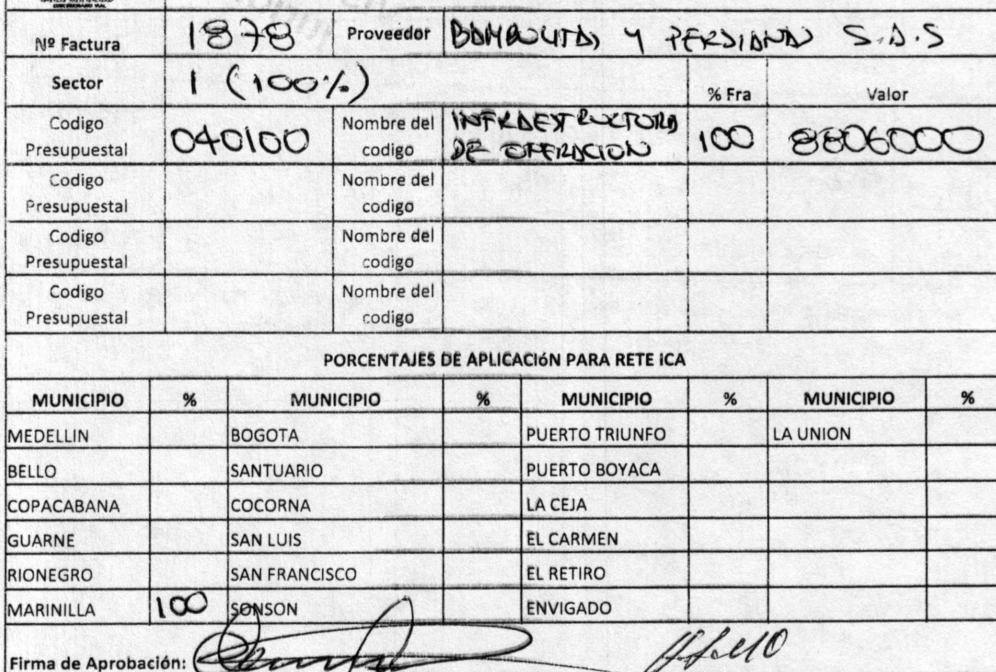 Nº Factura 1878 Proveedor BAMBALINAS Y PERSIANAS S.A.S
Sector 1 (100%) % Fra Valor
Codigo Presupuestal 040100 Nombre del codigo INFRAESTRUCTURA DE OPERACION 100 8806000
Codigo Presupuestal Nombre del codigo
Codigo Presupuestal Nombre del codigo
Codigo Presupuestal Nombre del codigo
PORCENTAJES DE APLICACIóN PARA RETE iCA
MUNICIPIO % MUNICIPIO % MUNICIPIO % MUNICIPIO %
MEDELLIN BOGOTA PUERTO TRIUNFO LA UNION
BELLO SANTUARIO PUERTO BOYACA
COPACABANA COCORNA LA CEJA
GUARNE SAN LUIS EL CARMEN
RIONEGRO SAN FRANCISCO EL RETIRO
MARINILLA 100 SONSON ENVIGADO
Firma de Aprobación: